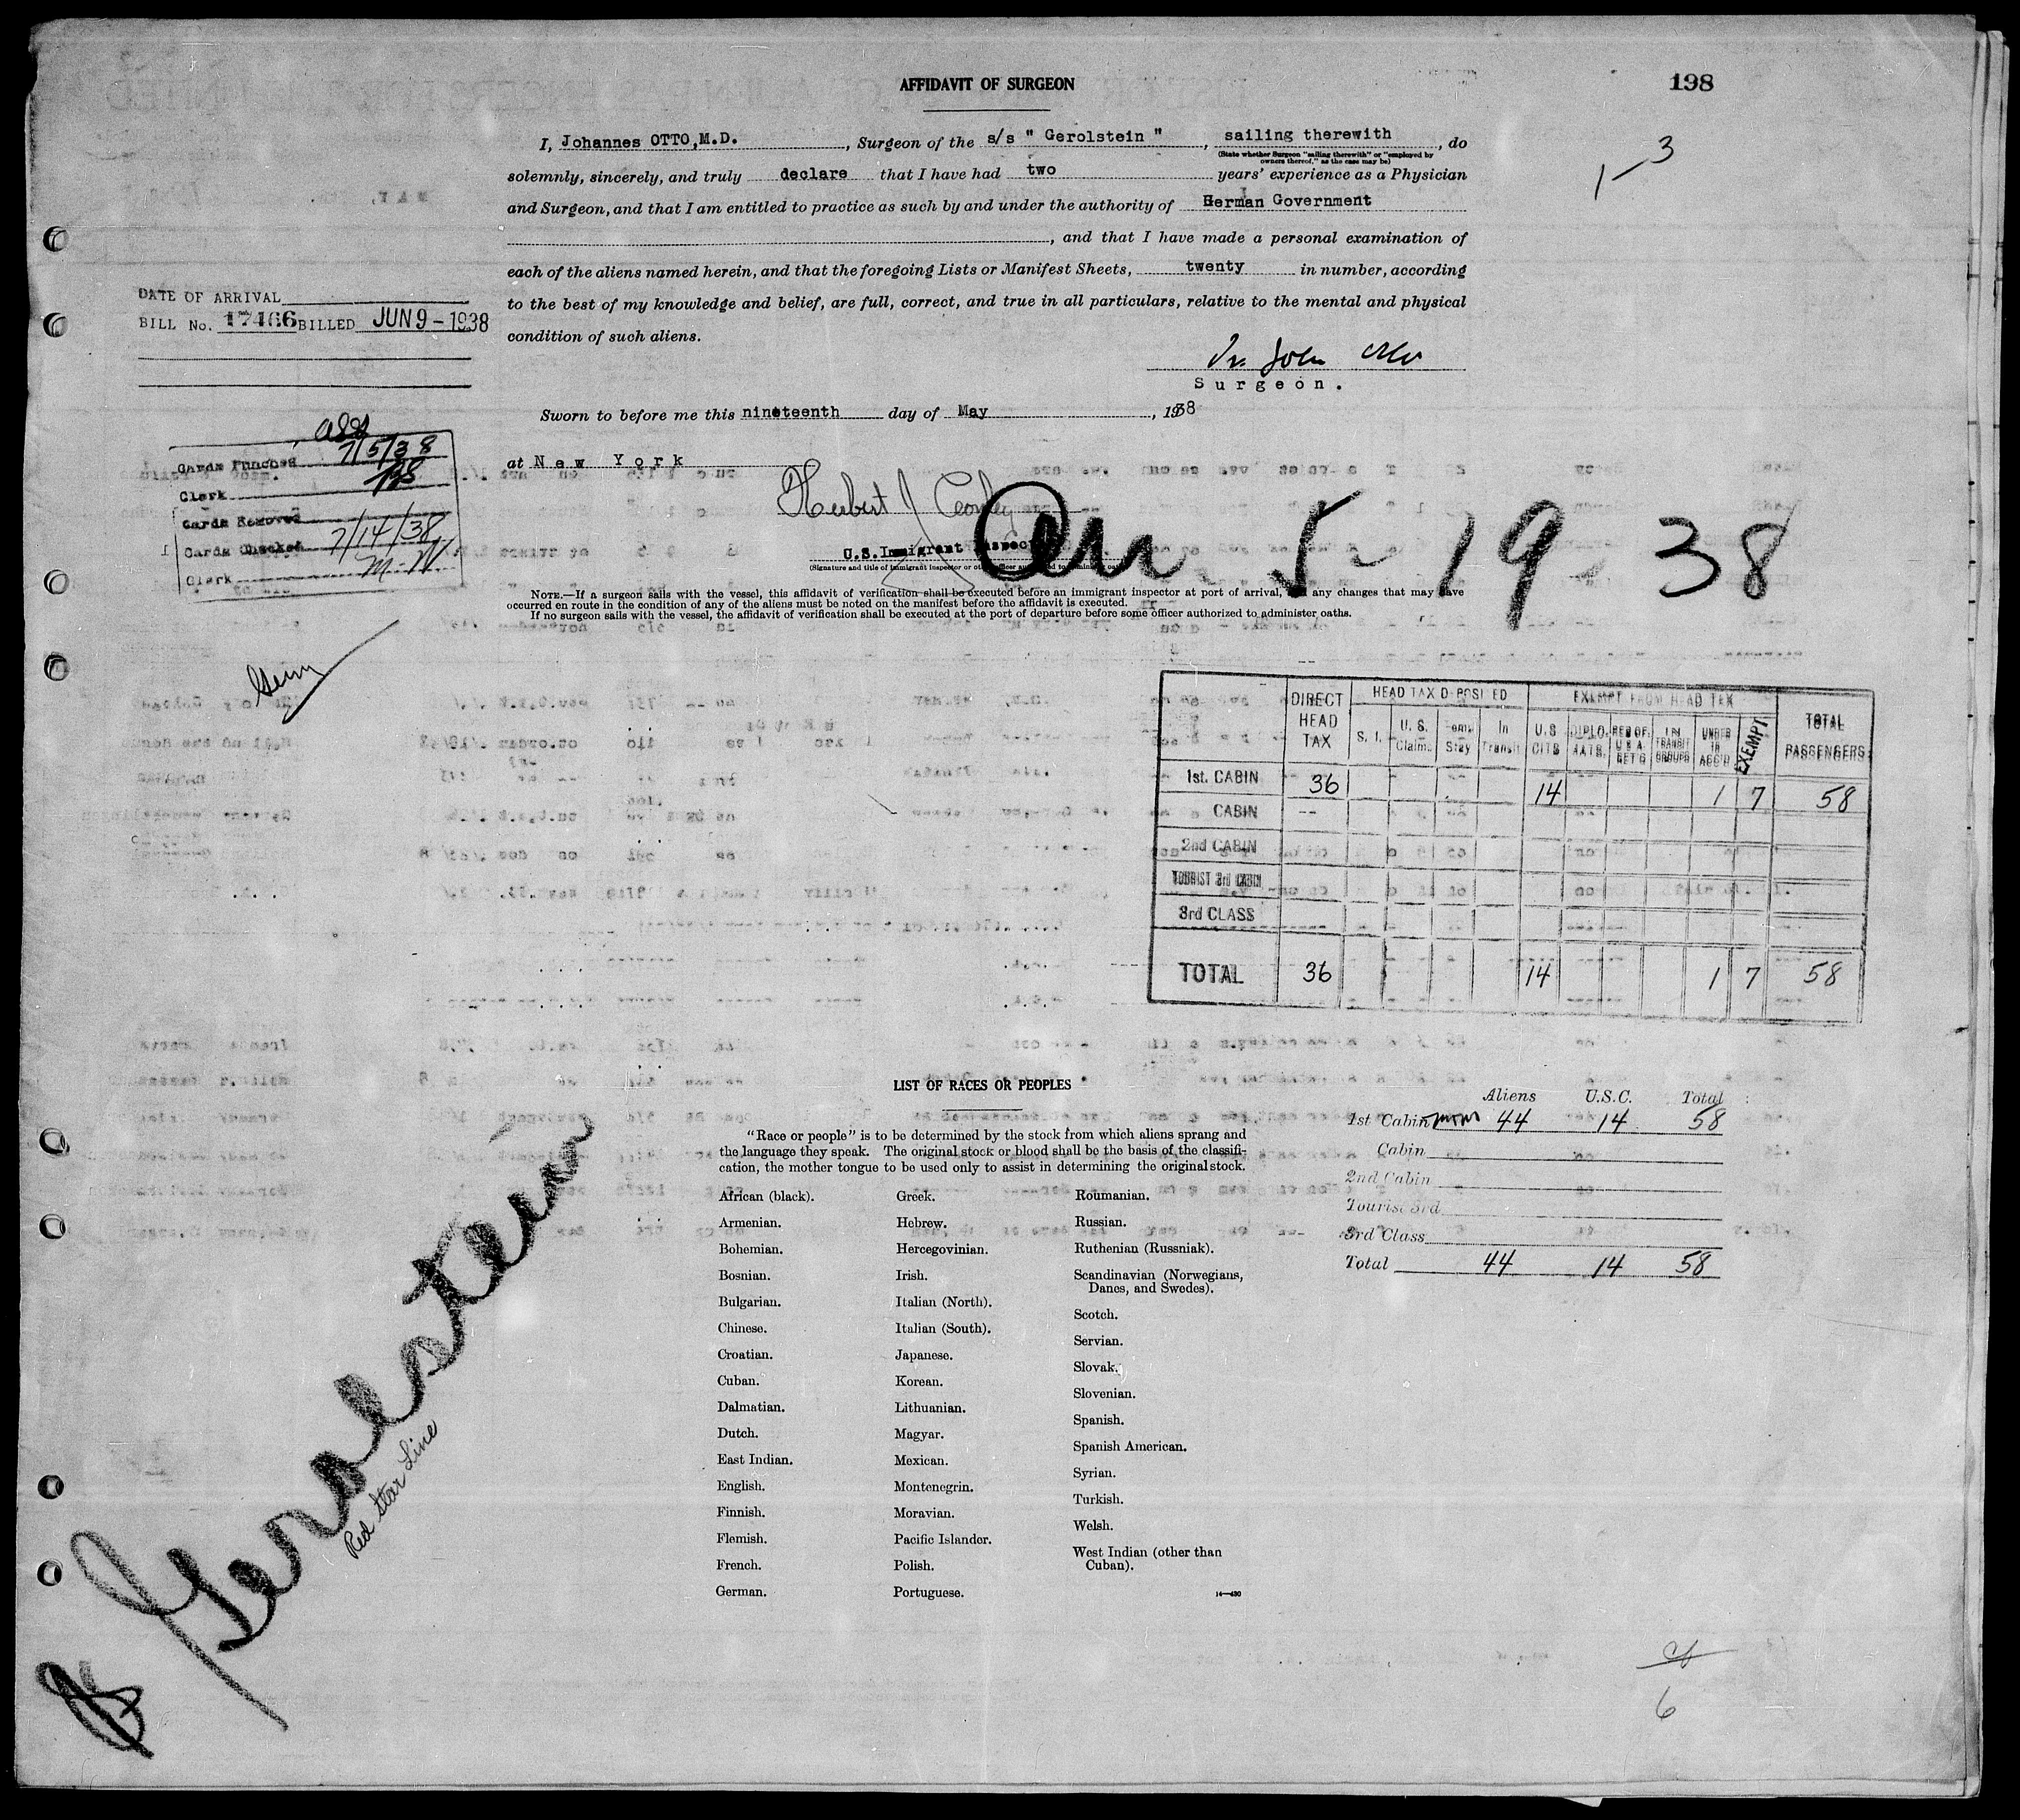 AFFIDAVIT OF SURGEON
198
I, Johannes OTTO, M.D., Surgeon of the s/s " Gerolstein ", sailing therewith, do
(State whether Surgeon "sailing therewith" or "employed by owners thereof," as the case may be)
1-3
solemnly, sincerely, and truly declare that I have had two years' experience as a Physician
and Surgeon, and that I am entitled to practice as such by and under the authority of German Government
, and that I have made a personal examination of
each of the aliens named herein, and that the foregoing Lists or Manifest Sheets, twenty in number, according
to the best of my knowledge and belief, are full, correct, and true in all particulars, relative to the mental and physical
condition of such aliens.
DATE OF ARRIVAL
BILL No. 17466 BILLED JUN 9-1938
Surgeon.
Sworn to before me this nineteenth day of May, 1938
at New York
Cards Punched 7/5/38
Clerk
Cards Removed
Cards Checked 7/14/38
Clerk M.W.
Herbert J
U.S. Immigrant Inspector
(Signature and title of immigrant inspector or other officer authorized to administer oaths)
5-19 38
NOTE.—If a surgeon sails with the vessel, this affidavit of verification shall be executed before an immigrant inspector at port of arrival, and any changes that may have
occurred en route in the condition of any of the aliens must be noted on the manifest before the affidavit is executed.
If no surgeon sails with the vessel, the affidavit of verification shall be executed at the port of departure before some officer authorized to administer oaths.
DIRECT HEAD TAX
HEAD TAX DEPOSITED
EXEMPT FROM HEAD TAX
TOTAL PASSENGERS
S. I.
U. S. Claims
Temp. Stay
In Transit
U.S CITS
DIPLOMATS
RES OF U.S.A. RET'G
IN TRANSIT GROUPS
UNDER 16 ACC'D
EXEMPT
1st. CABIN 36 14 1 7 58
CABIN --
2nd CABIN
TOURIST 3rd CABIN
3rd CLASS
TOTAL 36 14 1 7 58
LIST OF RACES OR PEOPLES
"Race or people" is to be determined by the stock from which aliens sprang and
the language they speak. The original stock or blood shall be the basis of the classifi-
cation, the mother tongue to be used only to assist in determining the original stock.
African (black).
Armenian.
Bohemian.
Bosnian.
Bulgarian.
Chinese.
Croatian.
Cuban.
Dalmatian.
Dutch.
East Indian.
English.
Finnish.
Flemish.
French.
German.
Greek.
Hebrew.
Hercegovinian.
Irish.
Italian (North).
Italian (South).
Japanese.
Korean.
Lithuanian.
Magyar.
Mexican.
Montenegrin.
Moravian.
Pacific Islander.
Polish.
Portuguese.
Roumanian.
Russian.
Ruthenian (Russniak).
Scandinavian (Norwegians,
Danes, and Swedes).
Scotch.
Servian.
Slovak.
Slovenian.
Spanish.
Spanish American.
Syrian.
Turkish.
Welsh.
West Indian (other than
Cuban).
14—430
Aliens U.S.C. Total
1st Cabin 44 14 58
Cabin
2nd Cabin
Tourist 3rd
3rd Class
Total 44 14 58
Gerolstein
Red Star Line
6